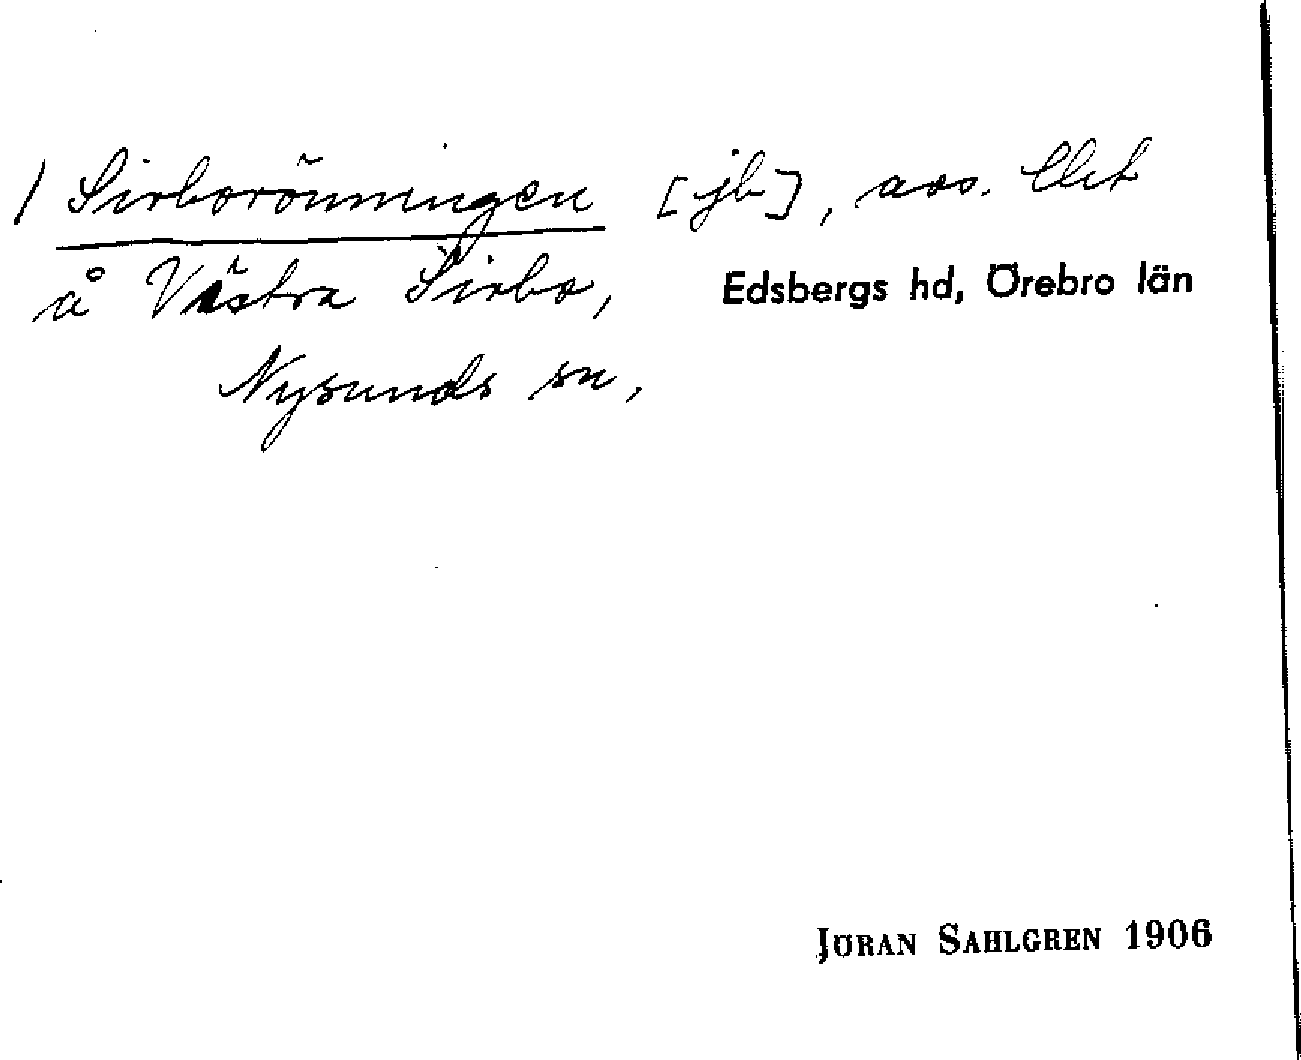 / Sirborönningen [jb], avs.
å Västra Sirbo, Edsbergs hd, Örebro län
Nysunds sn,
JÖRAN SAHLGREN 1906